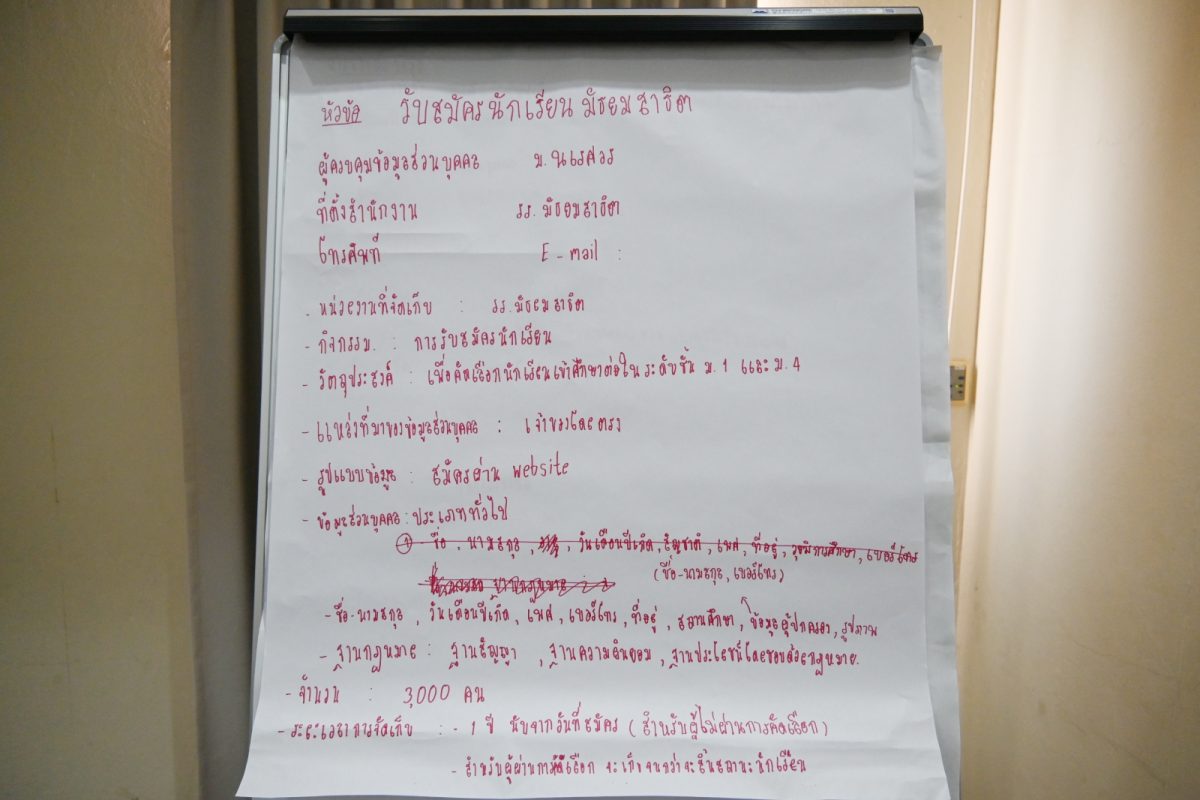 หัวข้อ รับสมัครนักเรียน มัธยมสาธิต
ผู้ควบคุมข้อมูลส่วนบุคคล ม.นเรศวร
ที่ตั้งสำนักงาน รร.มัธยมสาธิต
โทรศัพท์ E-mail :
- หน่วยงานที่จัดเก็บ : รร.มัธยมสาธิต
- กิจกรรม. : การรับสมัครนักเรียน
- วัตถุประสงค์ : เพื่อคัดเลือกนักเรียนเข้าศึกษาต่อใน ระดับชั้น ม.1 และ ม.4
- แหล่งที่มาของข้อมูลส่วนบุคคล : เจ้าของโดยตรง
- รูปแบบข้อมูล : สมัครผ่าน website
- ข้อมูลส่วนบุคคล : ประเภททั่วไป
① - ชื่อ, นามสกุล, วันเดือนปีเกิด, สัญชาติ, เพศ, ที่อยู่, วุฒิการศึกษา, เบอร์โทร
(ชื่อ-นามสกุล, เบอร์โทร)
- ชื่อ-นามสกุล, วันเดือนปีเกิด, เพศ, เบอร์โทร, ที่อยู่, สถานศึกษา, ข้อมูลผู้ปกครอง, รูปภาพ
- ฐานกฎหมาย : ฐานสัญญา, ฐานความยินยอม, ฐานประโยชน์โดยชอบด้วยกฎหมาย.
- จำนวน : 3,000 คน
- ระยะเวลาการจัดเก็บ : - 1 ปี นับจากวันที่สมัคร (สำหรับผู้ไม่ผ่านการคัดเลือก)
- สำหรับผู้ผ่านการคัดเลือก จะเก็บจนกว่าจะสิ้นสถานะนักเรียน